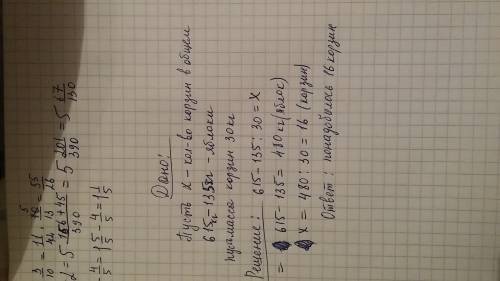 3/10 = 11/44 : 5/13 = 55/26
2 = 5 156+45/390 = 5 201/390 = 5 67/130
- 4/5 = 1 5/5 - 4/5 = 1 1/5
Дано:
Пусть x - кол-во корзин в общем
615кг - 135кг - яблоки
масса корзин 30 кг
Решение: 615-135:30 = x
= 615-135 = 480 кг (яблок)
x = 480 : 30 = 16 (корзин)
Ответ: понадобилось 16 корзин